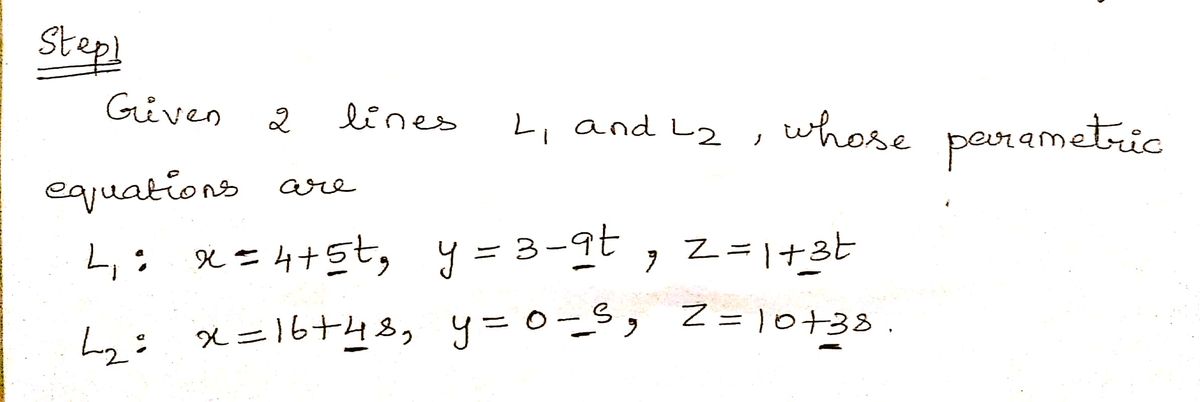 Step1
Given 2 lines L₁ and L₂, whose parametric
equations are
L₁: x = 4+5t, y = 3-9t, z = 1+3t
L₂: x = 16+4s, y = 0-s, z = 10+3s.